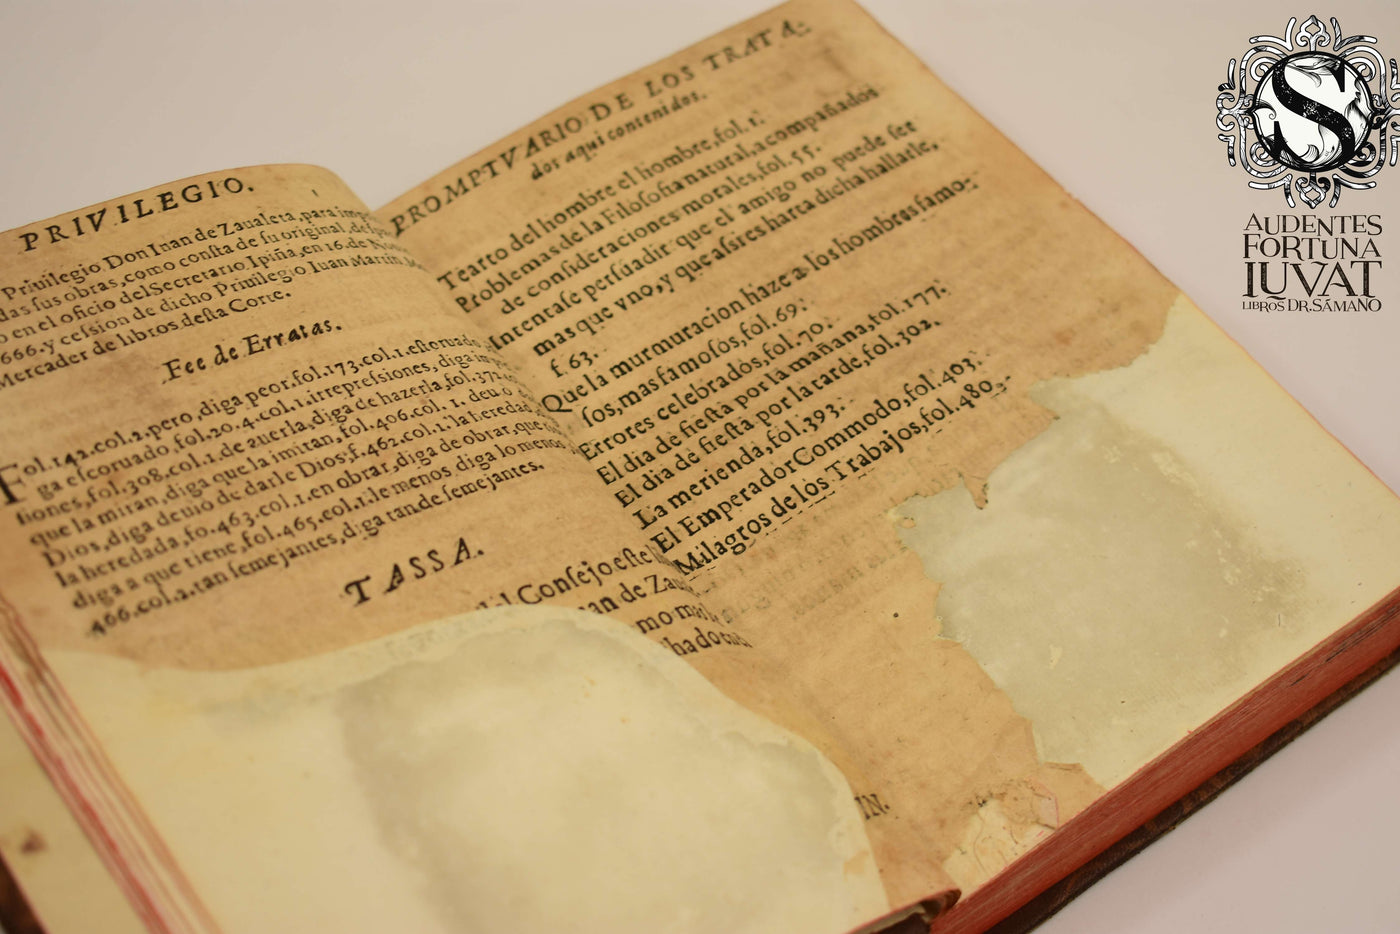 PRIVILEGIO.
Priuilegio Don Iuan de Zaualeta, para
das sus obras, como consta de su original,
o en el oficio del Secretario Ipiña, en 16. de
666. y cession de dicho Priuilegio Iuan Martin
Mercader de libros desta Corte.
Fee de Erratas.
Fol. 142. col. 2. pero, diga peor. fol. 173. col. 1. estoruado
ga escoruado, fol. 20. 4. col. 1. irrepressiones, diga
siones, fol. 308. col. 1. de auerla, diga de hazerla, fol. 372
que la miran, diga que la imitan, fol. 406. col. 1. deuo
Dios, diga deuio de darle Dios. f. 462. col. 1. la heredad
la heredada, fo. 463. col. 1. en obrar, diga de obrar, que
diga a que tiene, fol. 465. col. 1. le menos, diga lo menos
466. col. 2. tan semejantes, diga tan de semejantes.
TASSA.
Consejo este
an de
mo
hado
PROMPTVARIO DE LOS TRATA-
dos aqui contenidos.
Teatro del hombre el hombre, fol. 1.
Problemas de la Filosofia natural, acompañados
de consideraciones morales, fol. 55.
Intentase persuadir que el amigo no puede ser
mas que vno, y que assi es harta dicha hallarle,
f. 63.
Que la murmuracion haze a los hombres famo-
sos, mas famosos, fol. 69.
Errores celebrados, fol. 70.
El dia de fiesta por la mañana, fol. 177.
El dia de fiesta por la tarde, fol. 302.
La merienda, fol. 393.
El Emperador Commodo, fol. 403.
Milagros de los Trabajos, fol. 480.
IN.
S
AUDENTES
FORTUNA
IUVAT
LIBROS DR. SÁMANO